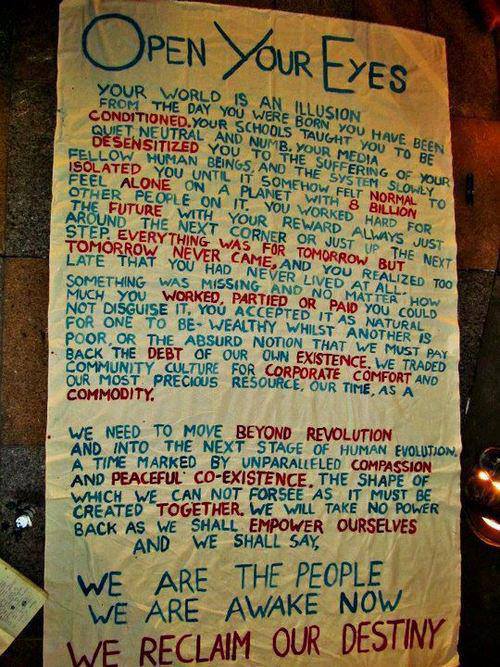 OPEN YOUR EYES
YOUR WORLD IS AN ILLUSION
FROM THE DAY YOU WERE BORN YOU HAVE BEEN
CONDITIONED. YOUR SCHOOLS TAUGHT YOU TO BE
QUIET NEUTRAL AND NUMB. YOUR MEDIA
DESENSITIZED YOU TO THE SUFFERING OF YOUR
FELLOW HUMAN BEINGS, AND THE SYSTEM SLOWLY
ISOLATED YOU UNTIL IT SOMEHOW FELT NORMAL TO
FEEL ALONE ON A PLANET WITH 8 BILLION
OTHER PEOPLE ON IT. YOU WORKED HARD FOR
THE FUTURE WITH YOUR REWARD ALWAYS JUST
AROUND THE NEXT CORNER OR JUST UP THE NEXT
STEP. EVERYTHING WAS FOR TOMORROW BUT
TOMORROW NEVER CAME, AND YOU REALIZED TOO
LATE THAT YOU HAD NEVER LIVED AT ALL.
SOMETHING WAS MISSING AND NO MATTER HOW
MUCH YOU WORKED, PARTIED OR PAID YOU COULD
NOT DISGUISE IT. YOU ACCEPTED IT AS NATURAL
FOR ONE TO BE- WEALTHY WHILST ANOTHER IS
POOR, OR THE ABSURD NOTION THAT WE MUST PAY
BACK THE DEBT OF OUR OWN EXISTENCE. WE TRADED
COMMUNITY CULTURE FOR CORPORATE COMFORT AND
OUR MOST PRECIOUS RESOURCE, OUR TIME, AS A
COMMODITY.
WE NEED TO MOVE BEYOND REVOLUTION
AND INTO THE NEXT STAGE OF HUMAN EVOLUTION.
A TIME MARKED BY UNPARALLELED COMPASSION
AND PEACEFUL CO-EXISTENCE. THE SHAPE OF
WHICH WE CAN NOT FORSEE AS IT MUST BE
CREATED TOGETHER. WE WILL TAKE NO POWER
BACK AS WE SHALL EMPOWER OURSELVES
AND WE SHALL SAY,
WE ARE THE PEOPLE
WE ARE AWAKE NOW
WE RECLAIM OUR DESTINY